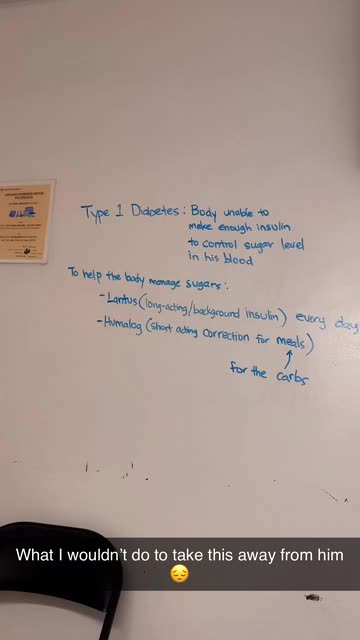 Type 1 Diabetes: Body unable to
make enough insulin
to control sugar level
in his blood
To help the body manage sugars:
- Lantus (long-acting/background insulin) every day
- Humalog (short acting correction for meals)
for the carbs
What I wouldn't do to take this away from him
😔